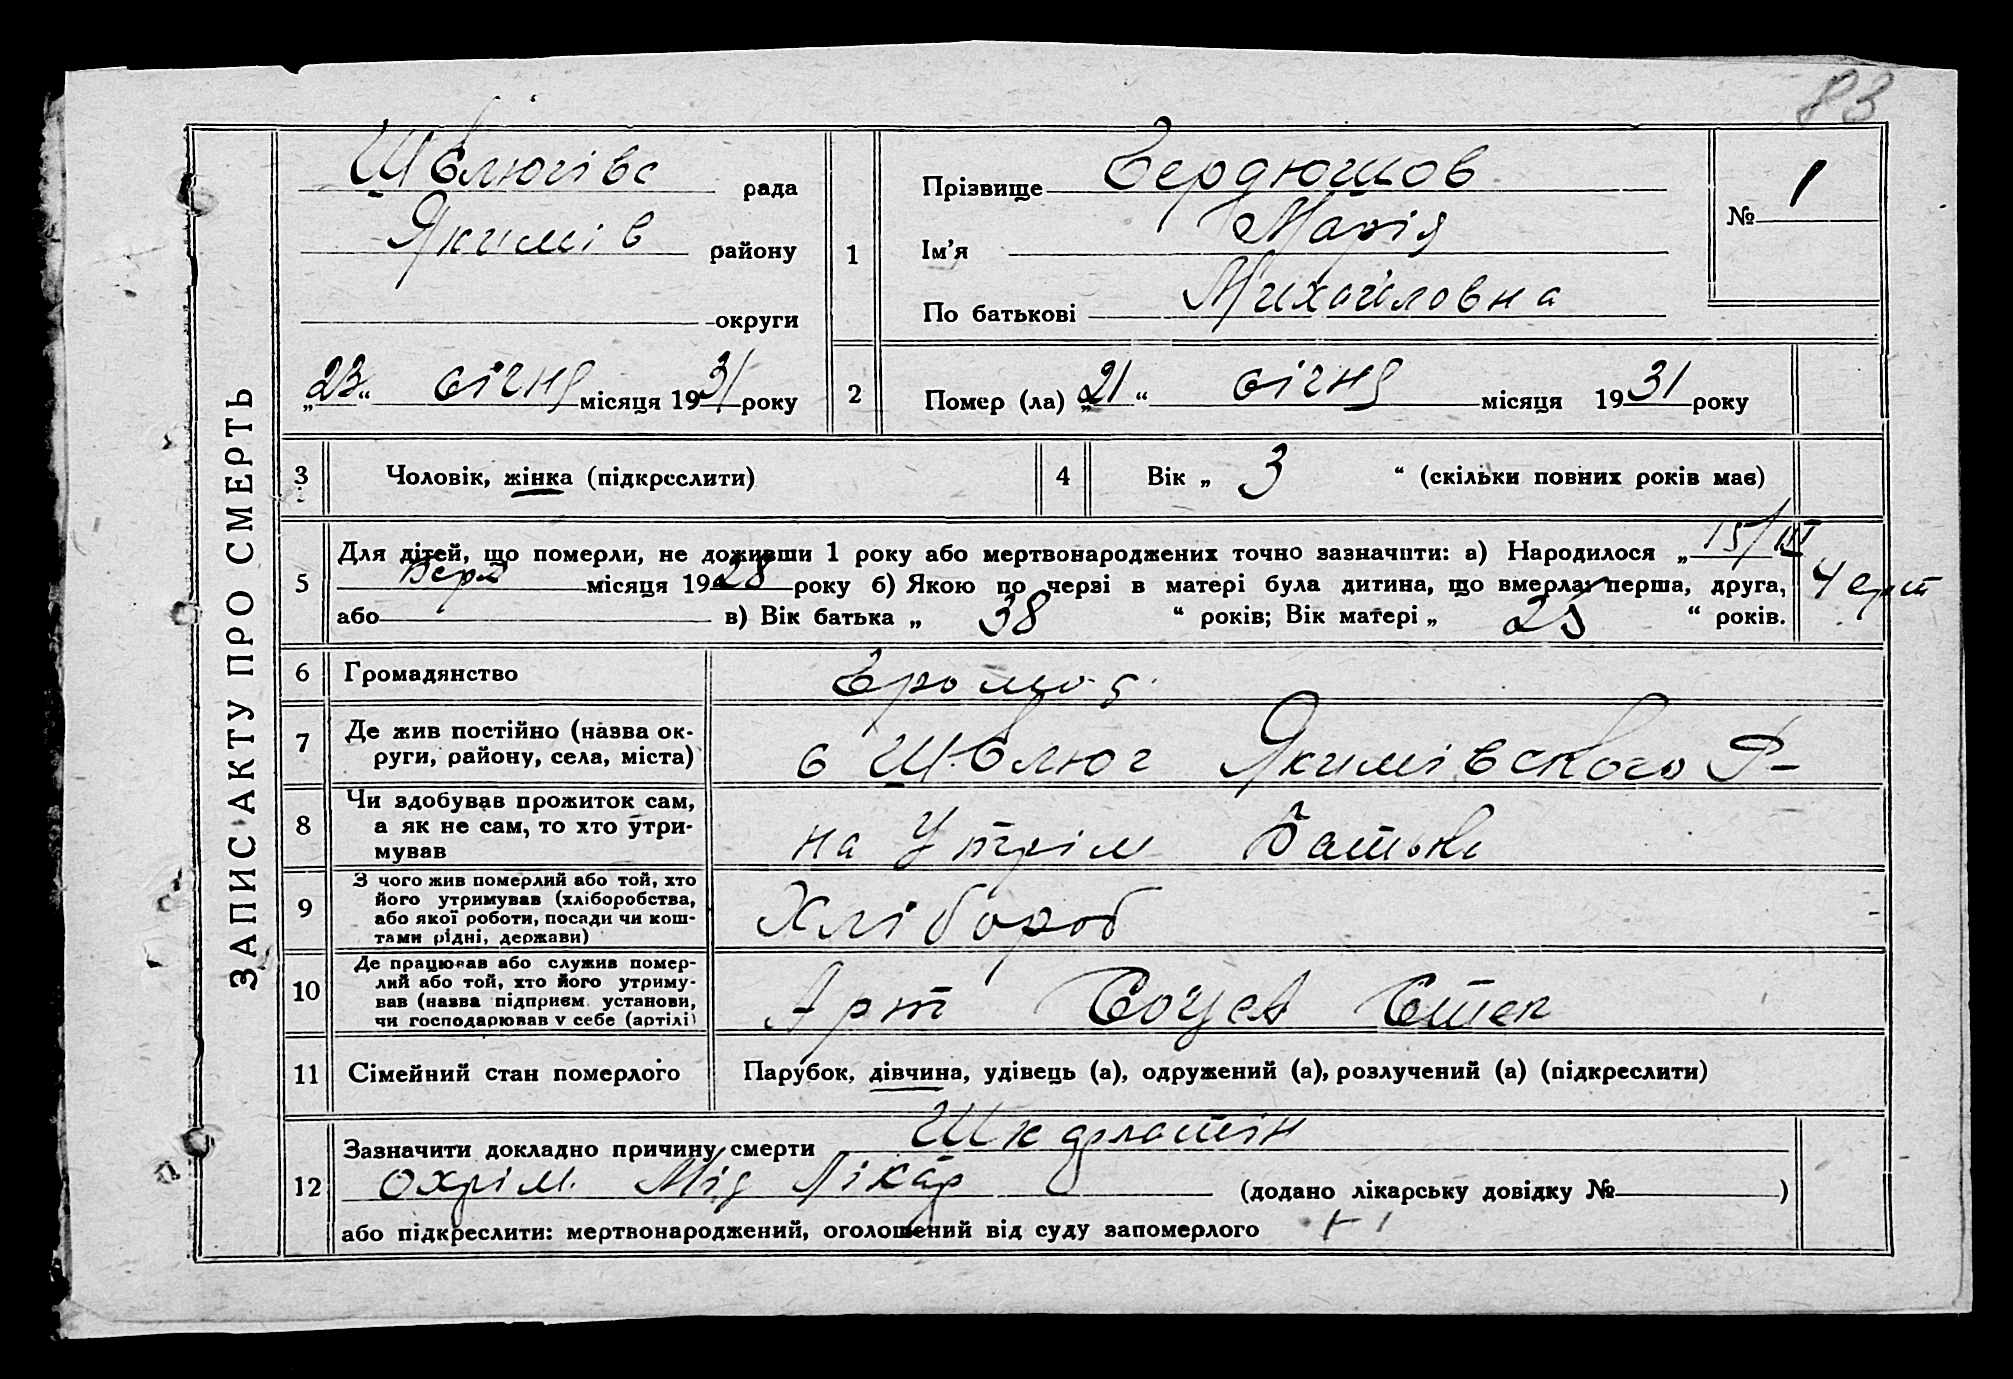 83
ЗАПИС АКТУ ПРО СМЕРТЬ
Шевлюгівс рада
Якимів району
округи
„23“ січня місяця 1931 року
1
Прізвище Бердюгшов
Ім’я Марія
По батькові Михайловна
№ 1
2 Помер (ла) „21“ січня місяця 1931 року
3 Чоловік, жінка (підкреслити)
4 Вік „ 3 “ (скільки повних років має)
5 Для дітей, що померли, не доживши 1 року або мертвонароджених точно зазначити: а) Народилося „15/III
місяця 1928 року б) Якою по черзі в матері була дитина, що вмерла: перша, друга,
або в) Вік батька „ 38 “ років; Вік матері „ 25 “ років.
6 Громадянство
7 Де жив постійно (назва ок-
руги, району, села, міста)
Якимівского Р-
8 Чи здобував прожиток сам,
а як не сам, то хто утри-
мував
на Утрім Батьк
9 З чого жив померлий або той, хто
його утримував (хліборобства,
або якої роботи, посади чи кош-
тами рідні, держави)
Хлібороб
10 Де працював або служив помер-
лий або той, хто його утриму-
вав (назва підприєм. установи,
чи господарював у себе (артілі)
Арт Степ
11 Сімейний стан померлого
Парубок, дівчина, удівець (а), одружений (а), розлучений (а) (підкреслити)
12 Зазначити докладно причину смерти
Лікар (додано лікарську довідку № )
або підкреслити: мертвонароджений, оголошений від суду запомерлого